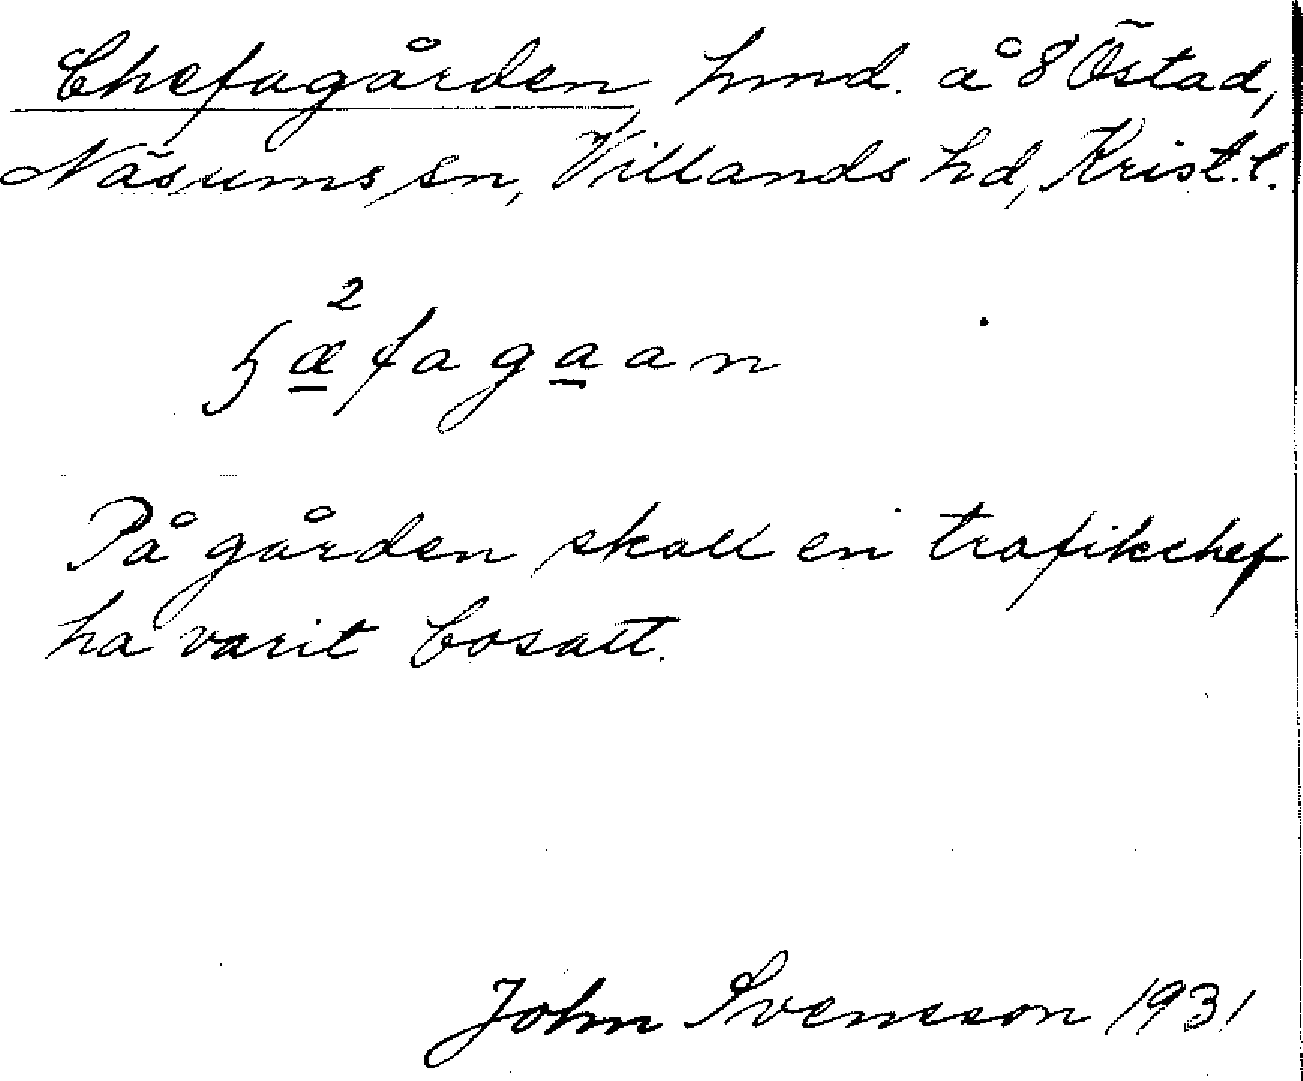 Chefagården, hmd. å 8 Östad,
Näsums sn, Villands hd, Krist. l.
2
ɧæfagaan
På gården skall en trafikchef
ha varit bosatt.
John Svensson 1931